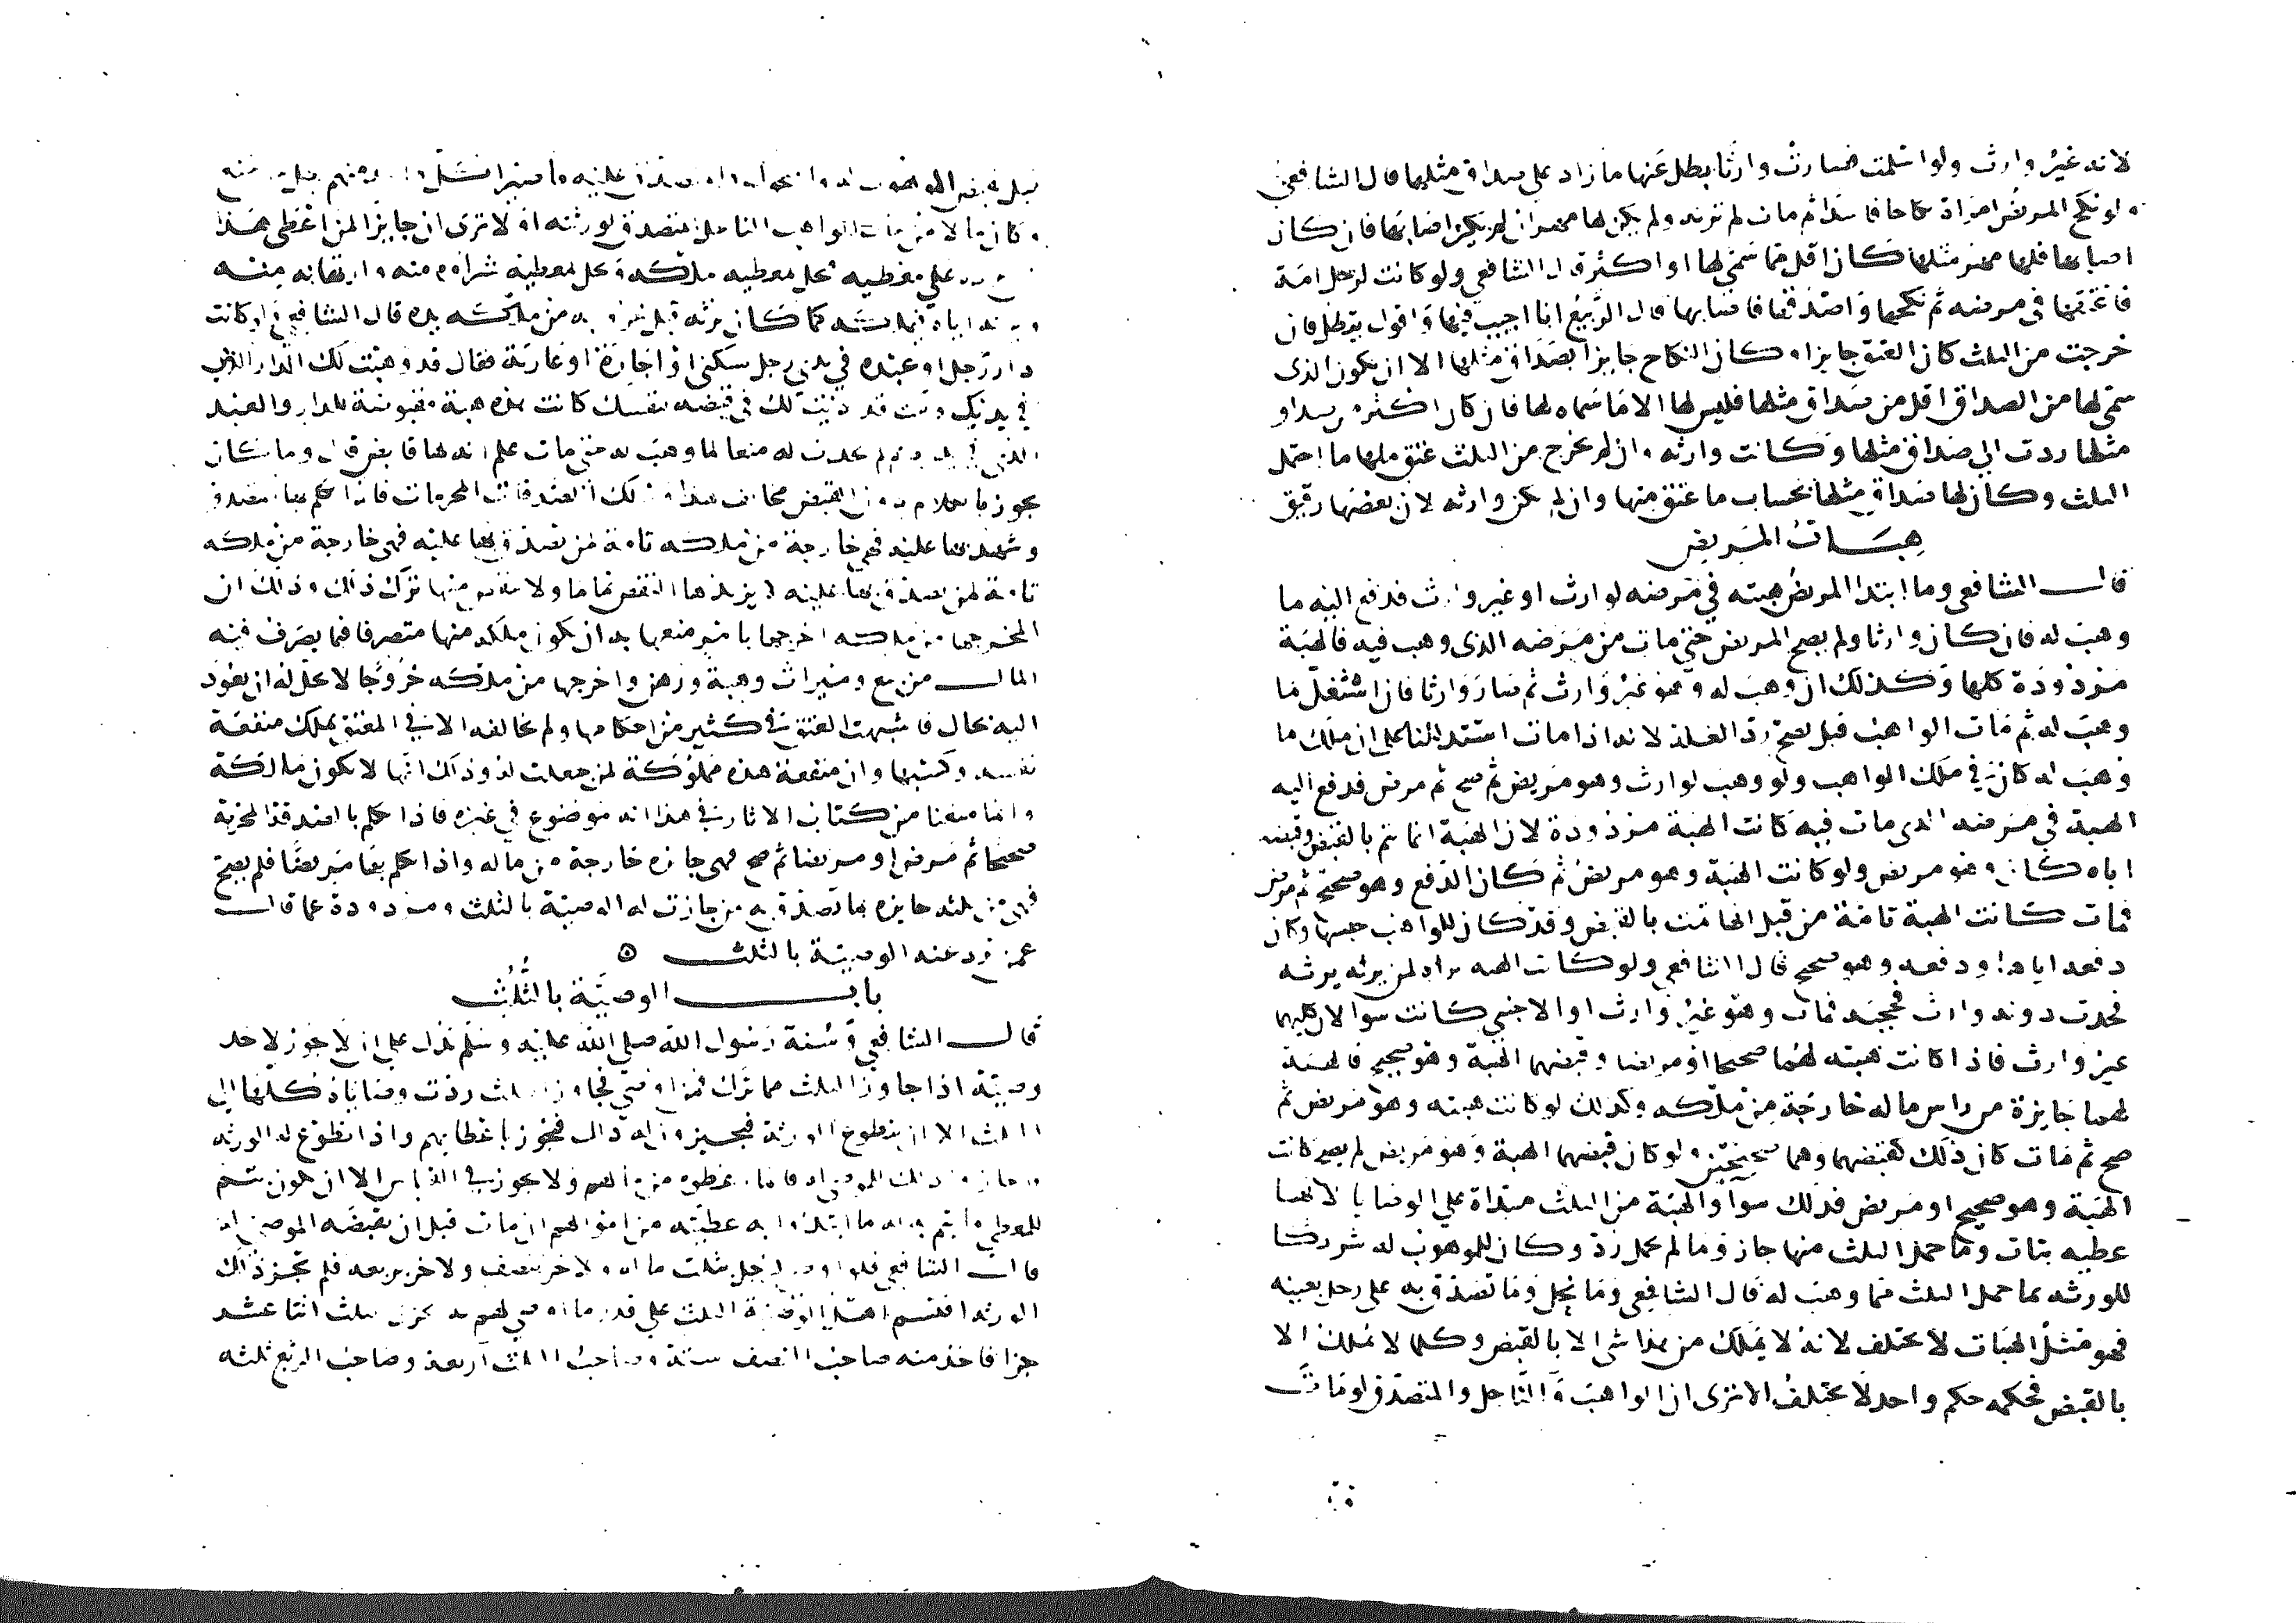 لانه غير وارث ولو اسلمت فصارت وارثا بطل عنها ما زاد على صداق مثلها قال الشافعي
ولو نكح المريض امراة نكاحا فاسدا ثم مات لم ترثه ولم يكن لها مهر ان لم يكن اصابها فان كان
اصابها فلها مهر مثلها كان اقل مما سمى لها او اكثر قال الشافعي ولو كانت لرجل امة
فاعتقها في مرضه ثم نكحها واصدقها فاصابها قال الربيع انا اجيب فيها واقول ينظر فان
خرجت من الثلث كان العتق جايزا وكان النكاح جايزا بصداق مثلها الا ان يكون الذى
سمى لها من الصداق اقل من صداق مثلها فليس لها الا ما سماه لها فان كان اكثر من صداق
مثلها ردت الى صداق مثلها وكانت وارثه وان لم تخرج من الثلث عتق منها ما احتمل
الثلث وكان لها صداق مثلها بحساب ما عتق منها وان لم تكن وارثه لان بعضها رقيق
هبات المريض
قال الشافعي وما ابتدا المريض هبته في مرضه لوارث او غير وارث فدفع اليه ما
وهب له فان كان وارثا ولم يصح المريض حتى مات من مرضه الذى وهب فيه فالهبة
مردودة كلها وكذلك ان وهب له وهو غير وارث ثم صار وارثا فان استغل ما
وهب له ثم مات الواهب قبل يصح رد الغلة لانه اذا مات استدللنا على ان ملك ما
وهب له كان في ملك الواهب ولو وهب لوارث وهو مريض ثم صح ثم مرض فدفع اليه
الهبة في مرضه الذى مات فيه كانت الهبة مردودة لان الهبة انما تتم بالقبض وقبضه
اياه كان وهو مريض ولو كانت الهبة وهو مريض ثم كان الدفع وهو صحيح ثم مرض
فمات كانت الهبة تامة من قبل انها تمت بالقبض وقد كان للواهب حبسها وكان
دفعه اياها ودفعه وهو صحيح قال الشافعي ولو كانت الهبه لمن يراه يرثه
فحدث دونه وارث فحجبه فمات وهو غير وارث او الاجنبي كانت سوا لان كليهما
غير وارث فاذا كانت هبته لهما صحيحا او مريضا وقبضهما الهبة وهو صحيح فالهبة
لهما جايزة من راس ماله خارجة من ملكه وكذلك لو كانت هبته وهو مريض ثم
صح ثم مات كان ذلك كقبضهما وهما صحيحين ولو كان قبضهما الهبة وهو مريض لم يصح كانت
الهبة وهو صحيح او مريض فذلك سوا والهبة من الثلث مبتداة على الوصايا لانها
عطية بتات وما حمل الثلث منها جاز وما لم يحمل رد وكان للموهوب له شريكا
للورثه بما حمل الثلث مما وهب له قال الشافعي وما نحل وما تصدق به على رجل بعينه
فهو مثل الهبات لا يختلف لانه لا يملك من هذا شى الا بالقبض وكلما لا يملك الا
بالقبض فحكمه حكم واحد لا يختلف الا ترى ان الواهب والناحل والمتصدق لو مات
قبل قبض الموهوب له والمنحول عليه ما صير قبل
وكان مالا من مال الواهب الناحل المتصدق لورثته او لا ترى ان جايزا لمن اعطى هذا
على معطيه فيحل لمعطيه ملكه ويحل لمعطيه شراوه منه وارتهانه منه
كما كان يرثه قبل خروجه من ملكه يده قال الشافعي ولو كانت
دار رجل او عبده في يدى رجل سكنى او اجارة او عارية فقال قد وهبت لك الدار التى
في يديك وكنت قد اذنت لك في قبضه لنفسك كانت هذه هبة مقبوضة للدار والعبد
الذى في يديه ثم لم يحدث له منعا لما وهب له حتى مات علم انه لها قابض قال وما كان
يجوز بالكلام دون القبض مخالف هذا وذلك الصدقات المحرمات فاذا تكلم بها المتصدق
وشهد بها عليه فهي خارجة من ملكه تامة لمن تصدق بها عليه فهي خارجة من ملكه
تامة لمن تصدق بها عليه لا يزيدها القبض تماما ولا ينقص منها ترك ذلك وذلك ان
المخرج لها من ملكه اخرجها بامر منعها به ان يكون ملكه منها متصرفا فيما يصرف فيه
المال من بيع وميراث وهبة ورهن واخرجها من ملكه خروجا لا يحل له ان يعود
اليه بحال فاشبهت العتق في كثير من احكامها ولم تخالفه الا في المعتق يملك منفعة
نفسه وكسبها وان منفعة هذه مملوكة لمن جعلت له وذلك انها لا تكون مالكة
وانما منعنا من كتاب الاثار في هذا انه موضوع في غيره فاذا تكلم بالصدقة المحرمة
صحيحا ثم مرض او مريضا ثم صح فهي جايزه خارجة من ماله واذا تكلم بها مريضا فلم يصح
فهي من ثلثه جايزه بما تصدق به من جازت له الوصية بالثلث ومردودة عما قال
عمن ترد عنه الوصية بالثلث
باب الوصية بالثلث
قال الشافعي وسنة رسول الله صلى الله عليه وسلم تدل على ان لا يجوز لاحد
وصية اذا جاوز الثلث مما ترك فمن اوصى فجاوز الثلث ردت وصاياه كلها الى
الثلث الا ان يتطوع الورثة فيجيزون له ذلك فيجوز باعطايهم واذا تطوع له الورثه
فاجازوا ذلك فانما اعطوه من اموالهم ولا يجوز في القياس الا ان يكون يتم
للمعطى بما يتم به له ما ابتدوا به عطيته من اموالهم ان مات قبل ان يقبضه الموصى له
قال الشافعي فلو اوصى لرجل بثلث ماله ولاخر بنصف ولاخر بربعه فلم تجز ذلك
الورثه اقتسم اهل الوصية الثلث على قدر ما اوصى لهم به يجزى الثلث اثنا عشر
جزا فاخذ منه صاحب النصف ستة وصاحب الثلث اربعة وصاحب الربع ثلثه